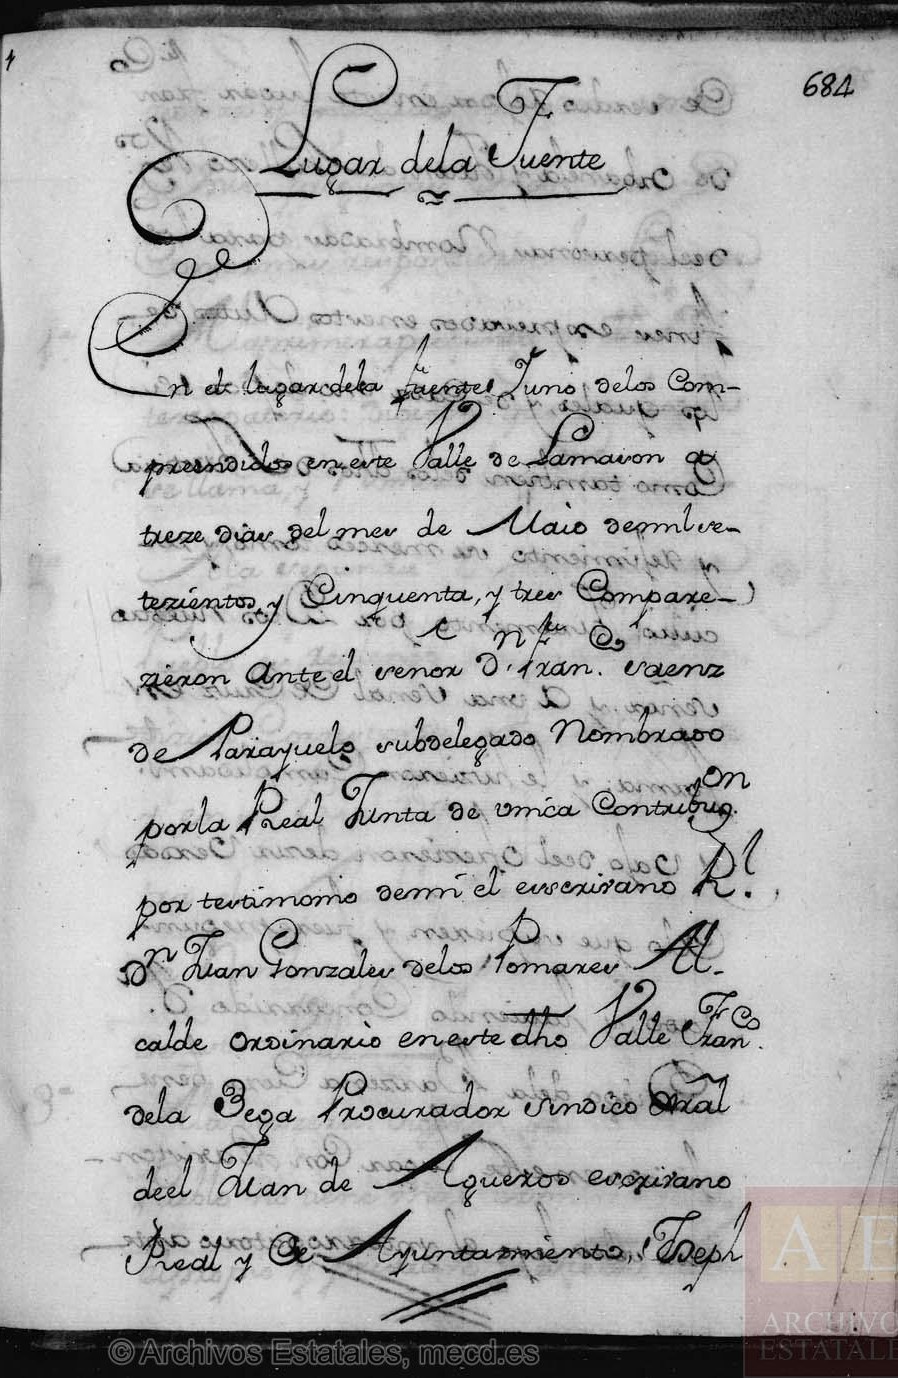 684
Lugar dela Fuente
En el lugar dela fuente, Uno delos Com-
preendidos en este Valle de Lamason a
treze dias del mes de Maio demil se-
tezientos, y Cinquenta, y tres Compare-
zieron Ante el señor Dn. Franco. saenz
de Parayuelo subdelegado Nombrado
por la Real Junta de unica Contribuzon.
por testimonio de mi el escrivano Rl.
Dn Juan Gonzales delos Pomares Al-
calde ordinario en este dho Valle Franco.
dela Bega Procurador sindico Gral
deel Juan de Agueros escrivano
Real y de Ayuntamiento, Joseph
© Archivos Estatales, mecd.es
AE
ARCHIVOS
ESTATALE